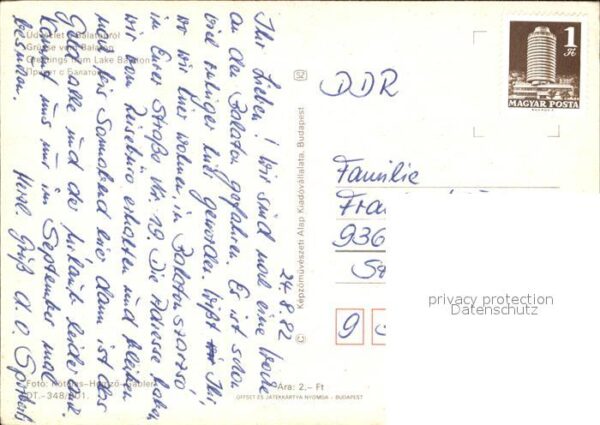 Üdvözlet a Balatonról
Grüsse vom Balaton
Greetings from Lake Balaton
Привет с Балатона
24.8.82
Ihr Lieben! Wir sind mal eine Woche
an den Balaton gefahren. Es ist schon
viel ruhiger hier geworden. Wißt Ihr
wo wir hier wohnen, in Balatonszárszó
in Eurer Straße Nr. 19. Die Adresse haben
wir vom Reisebüro erhalten und bleiben
nun bis Sonnabend hier dann ist das
Geld alle und der Urlaub leider auch.
Kommt uns nur im September mal
besuchen.
Herzl. Grüß d. O.
Foto:
DT.-348/
© Képzőművészeti Alap Kiadóvállalata, Budapest
Ára: 2,- Ft
OFFSET ÉS JÁTÉKKÁRTYA NYOMDA - BUDAPEST
1
Ft
MAGYAR POSTA
DDR
Familie
Fra
936
9
privacy protection
Datenschutz